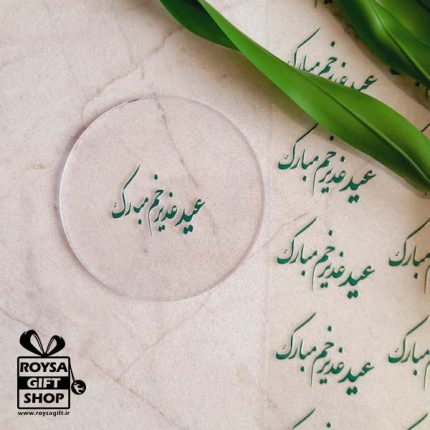 عید غدیر خم مبارک
عید غدیر خم مبارک
عید غدیر خم مبارک
عید غدیر خم مبارک
عید غدیر خم مبارک
عید غدیر خم مبارک
ROYSA
GIFT
SHOP
www.roysagift.ir